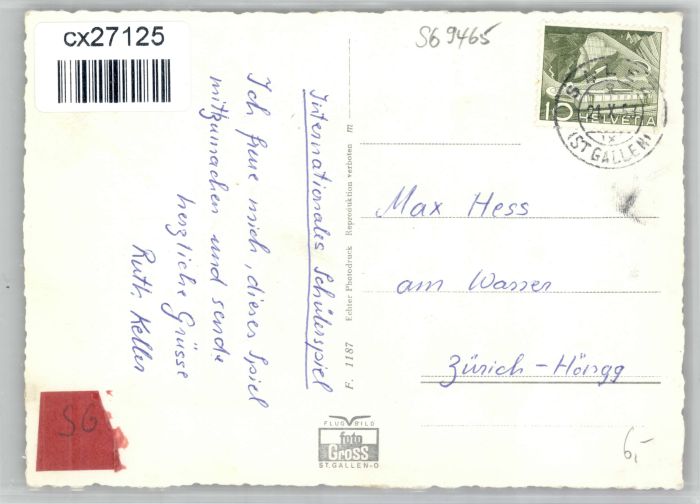 cx27125
SG 9465
10
HELVETIA
(ST GALLEN)
Internationales Schülerspiel
Ich freue mich, dieses Spiel
mitzumachen und sende
herzliche Grüsse
Ruth Keller
F. 1187 Echter Photodruck Reproduktion verboten m
Max Hess
am Wasser
Zürich - Höngg
FLUG BILD
foto
GROSS
ST. GALLEN-O
SG
6,-